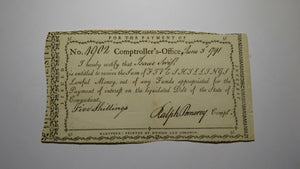 FOR THE PAYMENT OF
No. 4902 Comptroller's-Office, June 3d 1791
I hereby certify that Isaac Swift
is entitled to receive the Sum of FIVE SHILLINGS
Lawful Money, out of any Funds appropriated for the
Payment of interest on the legislated Debt of the State of
Connecticut.
Five Shillings
Ralph Pomeroy Compt.
HARTFORD: PRINTED BY HUDSON AND GOODWIN.